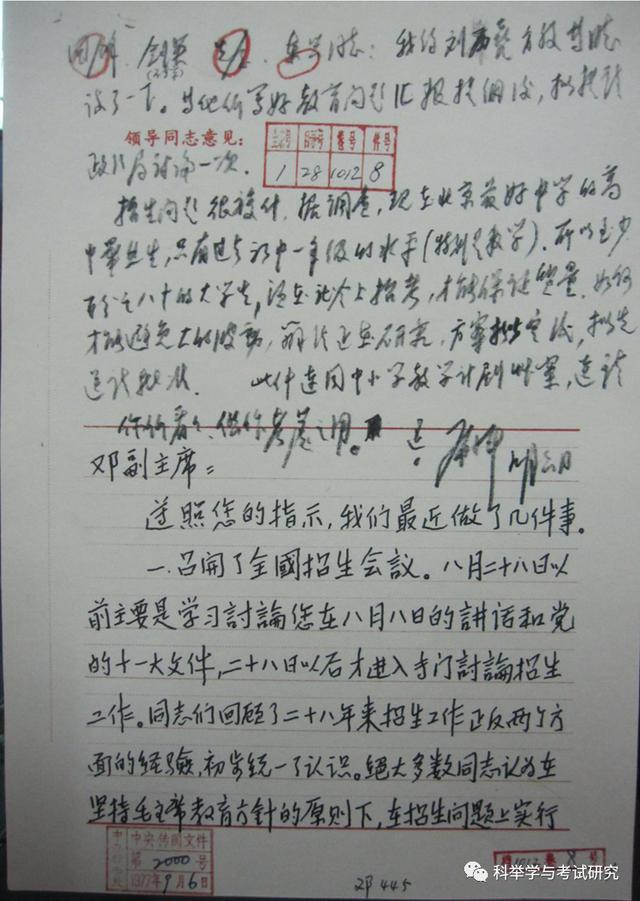 国锋、剑英、先念、东兴同志：我约刘西尧等同志
谈了一下。等他们写好教育问题汇报提纲后，拟提请
领导同志意见：
全宗号 目录号 卷号 件号
1 28 1012 8
政治局讨论一次．
招生问题很复杂．据调查，现在北京最好中学的高
中毕业生，只有过去初中一年级的水平(特别是数学)．所以至少
百分之八十的大学生，须在社会上招考，才能保证质量．如何
才能避免大的波动，办法正在研究，方案拟定后，拟先
送请批准． 此件连同中小学教学计划草案，送请
你们看看，供你们考虑之用。
邓副主席：
遵照您的指示，我们最近做了几件事。
一、召開了全國招生会議。八月二十八日以
前主要是学习討論您在八月八日的講话和党
的十一大文件，二十八日以后才进入专门討論招生
工作。同志们回顾了二十八年来招生工作正反两个方
面的经驗，初步統一了认识。絕大多数同志认为在
坚持毛主席教育方針的原则下，在招生问题上实行
中央传阅文件
第2000号
1977年9月6日
1012 8 号
邓445
科举学与考试研究